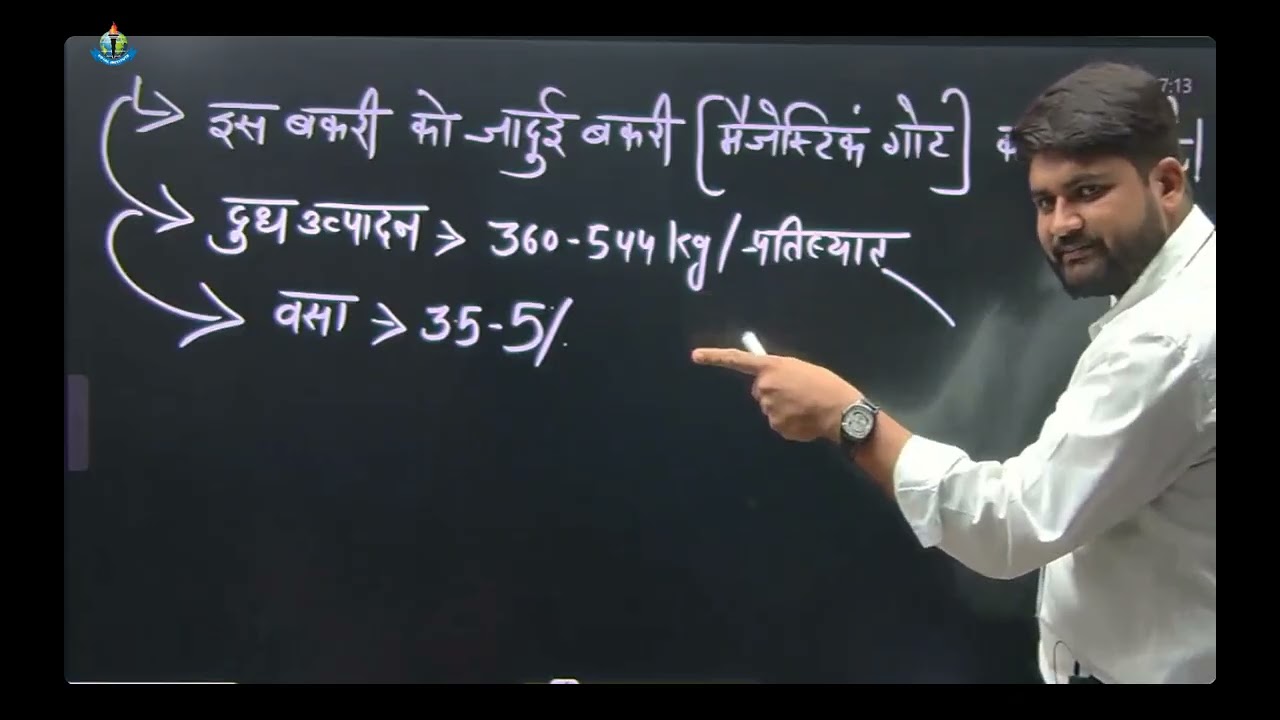 7:13
इस बकरी को जादुई बकरी [मैजेस्टिकं गोट]
दुध उत्पादन → 360-544 kg/प्रतिब्यात
वसा → 3.5-5%